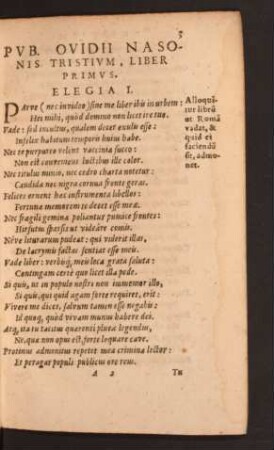 5
PVB. OVIDII NASO-
NIS TRISTIVM, LIBER
PRIMVS.
ELEGIA I.
PArve (nec invideo) sine me liber ibis in urbem:
Hei mihi, quòd domino non licet ire tuo.
Vade: sed incultus, qualem decet exulis esse:
Infelix habitum temporis huius habe.
Nec te purpureo velent vaccinia succo:
Non est conveniens luctibus ille color.
Nec titulus minio, nec cedro charta notetur:
Candida nec nigra cornua fronte geras.
Felices ornent hæc instrumenta libellos:
Fortunæ memorem te decet esse meæ.
Nec fragili geminæ poliantur pumice frontes:
Hirsutus sparsis ut videare comis.
Neve liturarum pudeat: qui viderit illas,
De lacrymis factas sentiat esse meis.
Vade liber: verbisq́, meis loca grata saluta:
Contingam certè quo licet illa pede.
Si quis, ut in populo nostri non immemor illo,
Si quis, qui quid agam forte requiret, erit:
Vivere me dices, salvum tamen esse negabis:
Id quoq, quòd vivam munus habere dei.
Atq, ita tu tacitus quærenti plura legendus,
Ne, quæ non opus est, forte loquare cave.
Protinus admonitus repetet mea crimina lector:
Et peragar populi publicus ore reus.
A 3 Tu
Alloqui-
tur librū
ut Romā
vadat, &
quid ei
faciendū
sit, admo-
net.